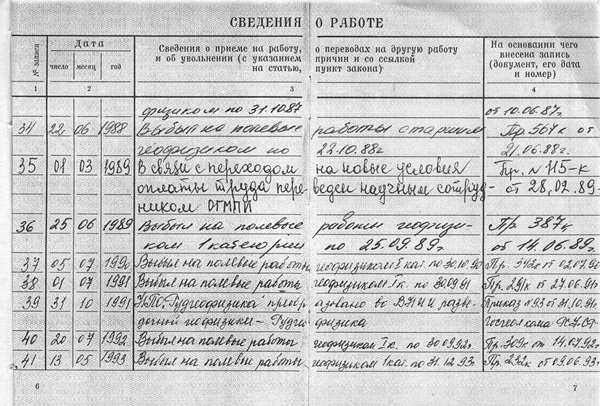 СВЕДЕНИЯ О РАБОТЕ
№ записи
Дата
Сведения о приеме на работу, о переводах на другую работу
и об увольнении (с указанием причин и со ссылкой
на статью, пункт закона)
На основании чего
внесена запись
(документ, его дата
и номер)
число месяц год
1 2 3 4
физиком по 31.10.87 от 10.06.87г.
34 22 06 1988 Выбыл на полевые работы старшим Пр 567к от
геофизиком по 22.10.88г. 21.06.88г.
35 01 03 1989 В связи с переходом на новые условия Пр. N 115-к
оплаты труда переведен научным сотруд- от 28.02.89-
ником ОГМПИ
36 25 06 1989 Выбыл на полевые работы геофизи- Пр 387к
ком 1 категории по 25.09.89г. от 14.06.89г.
37 05 07 1990 Выбыл на полевые работы геофизиком 1 кат. по 30.10.90 Пр 342к от 02.07.90
38 01 07 1991 Выбыл на полевые работы геофизиком 1 к. по 30.09.91 Пр. 291к от 27.06.91г
39 31 10 1991 НПО "Рудгеофизика" преобразовано во ВНИИ разве- Приказ №93 от 31.10.91г.
дочной геофизики - Рудгеофизика Госгеолкома РСФСР
40 20 07 1992 Выбыл на полевые работы геофизиком 1 к. по 30.09.92г. Пр. 309к от 14.07.92г.
41 13 05 1993 Выбыл на полевые работы геофизиком 1 кат. по 31.12.93г. Пр. 232к от 09.06.93г.
6 7